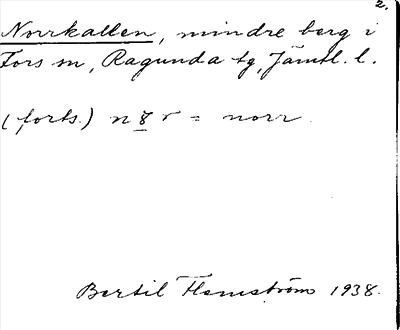 2.
Norrkallen, mindre berg i
Fors sn, Ragunda tg, Jämtl. l.
(forts.) n8r = norr
Bertil Flemström 1938.